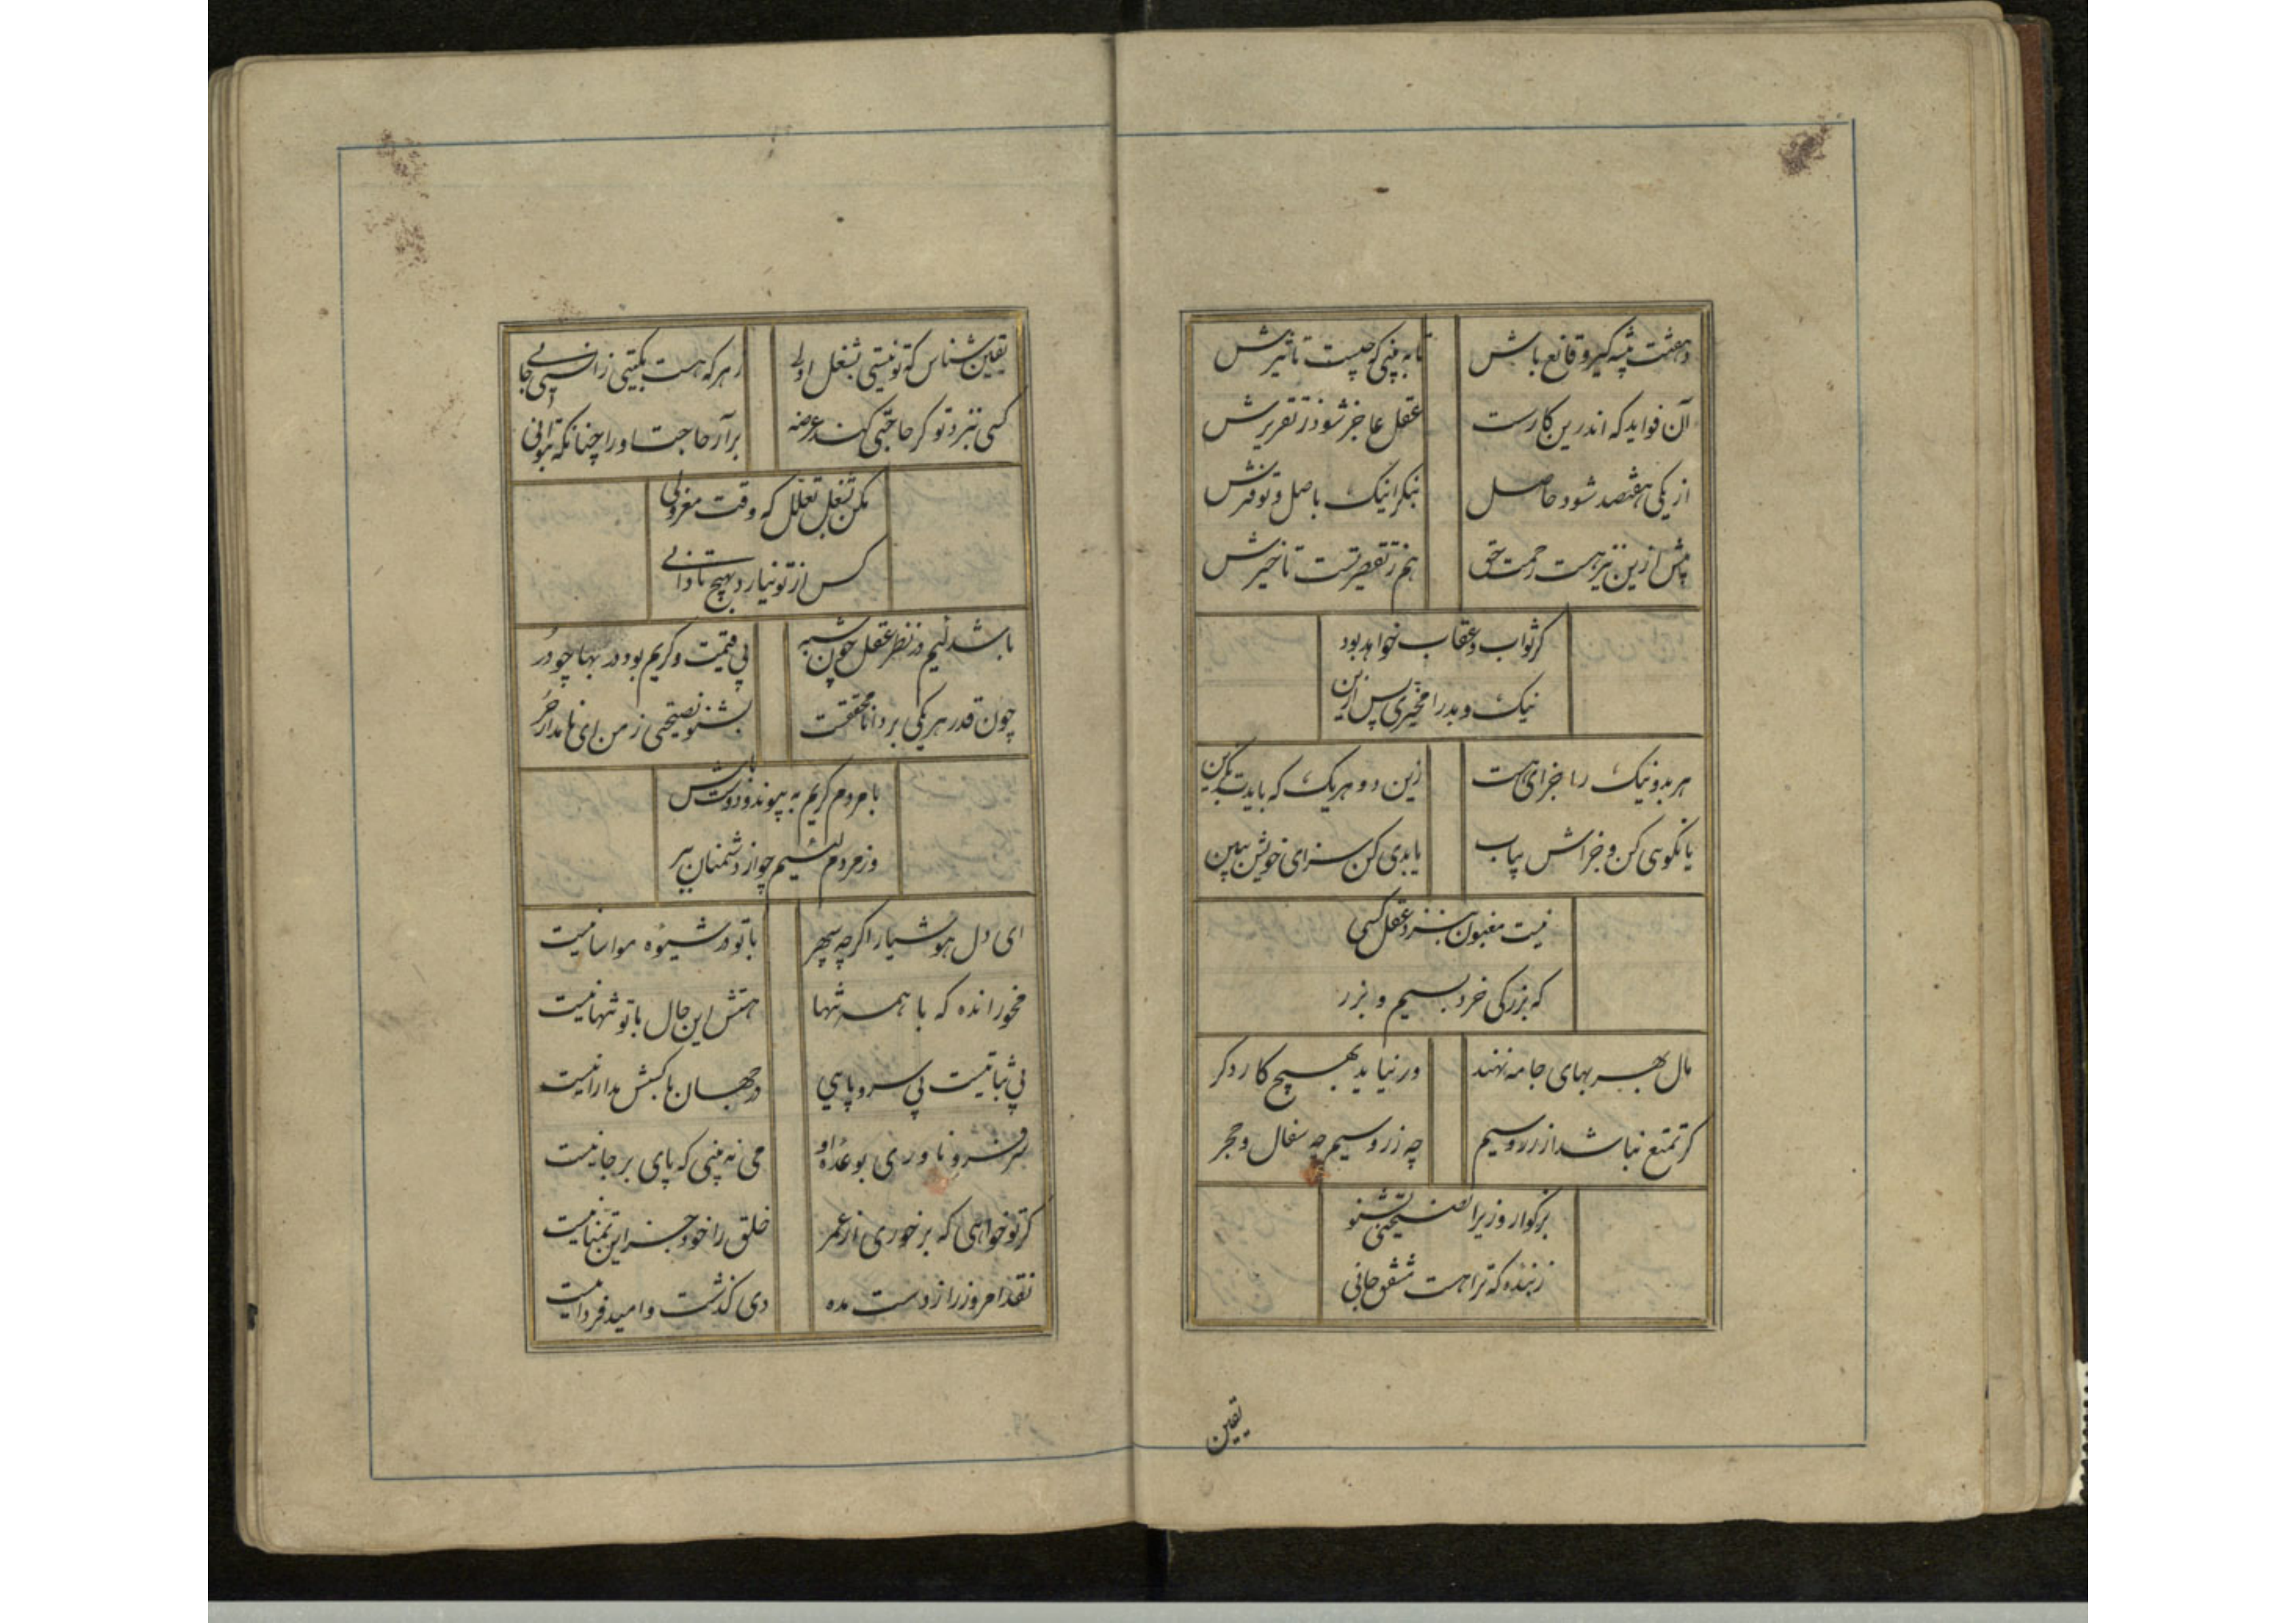 دهقنت پیشه گیر و قانع باش
تا به بینی که چیست تاثیرش
آن فواید که اندرین کارست
عقل عاجز شود ز تقریرش
از یکی هفتصد شود حاصل
بنگر اینک باصل و توفیرش
پیش ازین نیز هست رحمت حق
هم ز تقصیر تست تاخیرش
گر ثواب و عقاب خواهد بود
نیک و بد را مخیری پس ازین
هر بد و نیک را جزای هست
زین دو هر یک که بایدت بگزین
یا نکویی کن و جزاش بیاب
یا بدی کن سزای خویش ببین
نیست مغبون بنزد عقل کسی
که بزرگی خرد بسیم و بزر
مال بهر بهای جامه نهند
ور نیاید بهیچ کار دگر
گر تمتع نباشد از زر و سیم
چه زر و سیم چه سفال و حجر
بزرگوار وزیرا نصیحتی بشنو
ز بنده که ترا هست مشفق جانی
یقین
یقین شناس که تو نیستی بشغل اولی
ز هر که هست بگیتی
کسی بنزد تو گر حاجتی کند عرضه
بر آر حاجت او را چنانکه بتوانی
مکن بشغل تعلل که وقت معزولی
کس از تو نیارد بهیچ تاوانی
باشد لئیم در نظر عقل چون شبه
بی قیمت و کریم بود در بها چو در
چون قدر هر یکی بر دانا محققست
بشنو نصیحتی ز من ای نامدار حر
با مردم کریم به پیوند و دوست باش
وز مردم لئیم چو از دشمنان ببر
ای دل هوشیار اگر چه سپهر
با تو در شیوه مواسا نیست
مخور انده که با همه تنها
هستش این حال با تو تنها نیست
بی ثباتیست بی سر و پایی
در جهان با کسش مدارا نیست
سر فرو ناوری بوعده او
می نه بینی که پای بر جا نیست
گر تو خواهی که بر خوری از عمر
خلق را خود جز این تمنا نیست
نقد امروز را ز دست مده
دی گذشت و امید فردا نیست